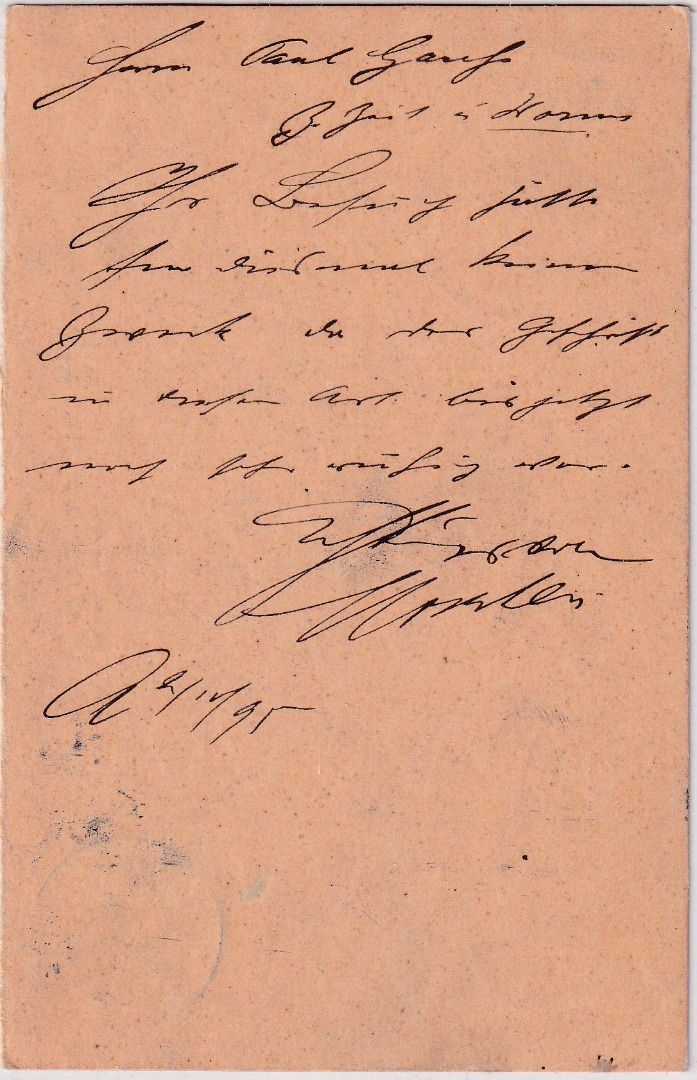 Herrn Paul Garnhs
z. Zeit in Worms
Ihr Besuch hätte
für diesmal keinen
Zweck da das Geschäft
in dieser Art bis jetzt
noch sehr ruhig war.
A 2/11/95